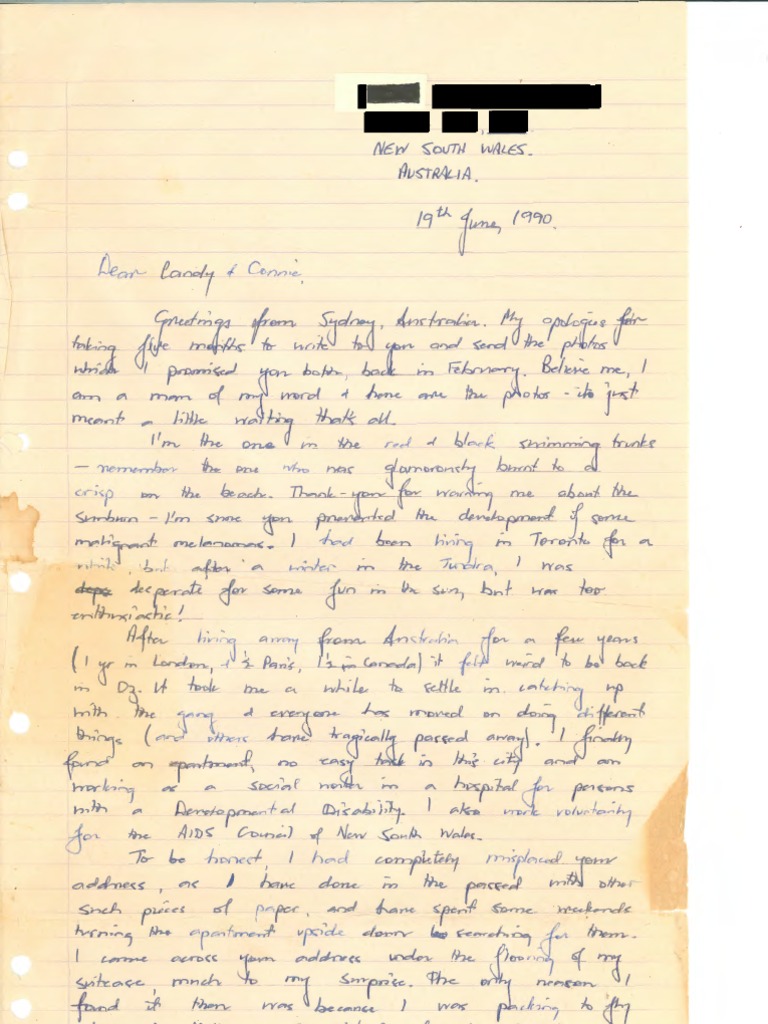 NEW SOUTH WALES.
AUSTRALIA.
19th June, 1990.
Dear Candy & Connie,
Greetings from Sydney, Australia. My apologies for
taking five months to write to you and send the photos
which I promised you both, back in February. Believe me, I
am a man of my word & here are the photos - its just
meant a little waiting thats all.
I'm the one in the red & black swimming trunks
- remember the one who was glamorously burnt to a
crisp on the beach. Thank-you for warning me about the
sunburn - I'm sure you prevented the development of some
malignant melanomas. I had been living in Toronto for a
while, but after a winter in the Tundra, I was
desperate for some fun in the sun, but was too
enthusiastic!
After living away from Australia for a few years
(1 yr in London, Paris, in Canada) it felt weird to be back
in Oz. It took me a while to settle in. catching up
with the gang & everyone has moved on doing different
things (and others have tragically passed away). I finally
found an apartment, no easy task in this city and am
working as a social worker in a hospital for persons
with a Developmental Disability. I also work voluntarily
for the AIDS Council of New South Wales.
To be honest, I had completely misplaced your
address, as I have done in the passed with other
such pieces of paper, and have spent some weekends
turning the apartment upside down searching for them.
I came across your address under the flooring of my
suitcase, much to my surprise. The only reason I
found it then was because I was packing to fly